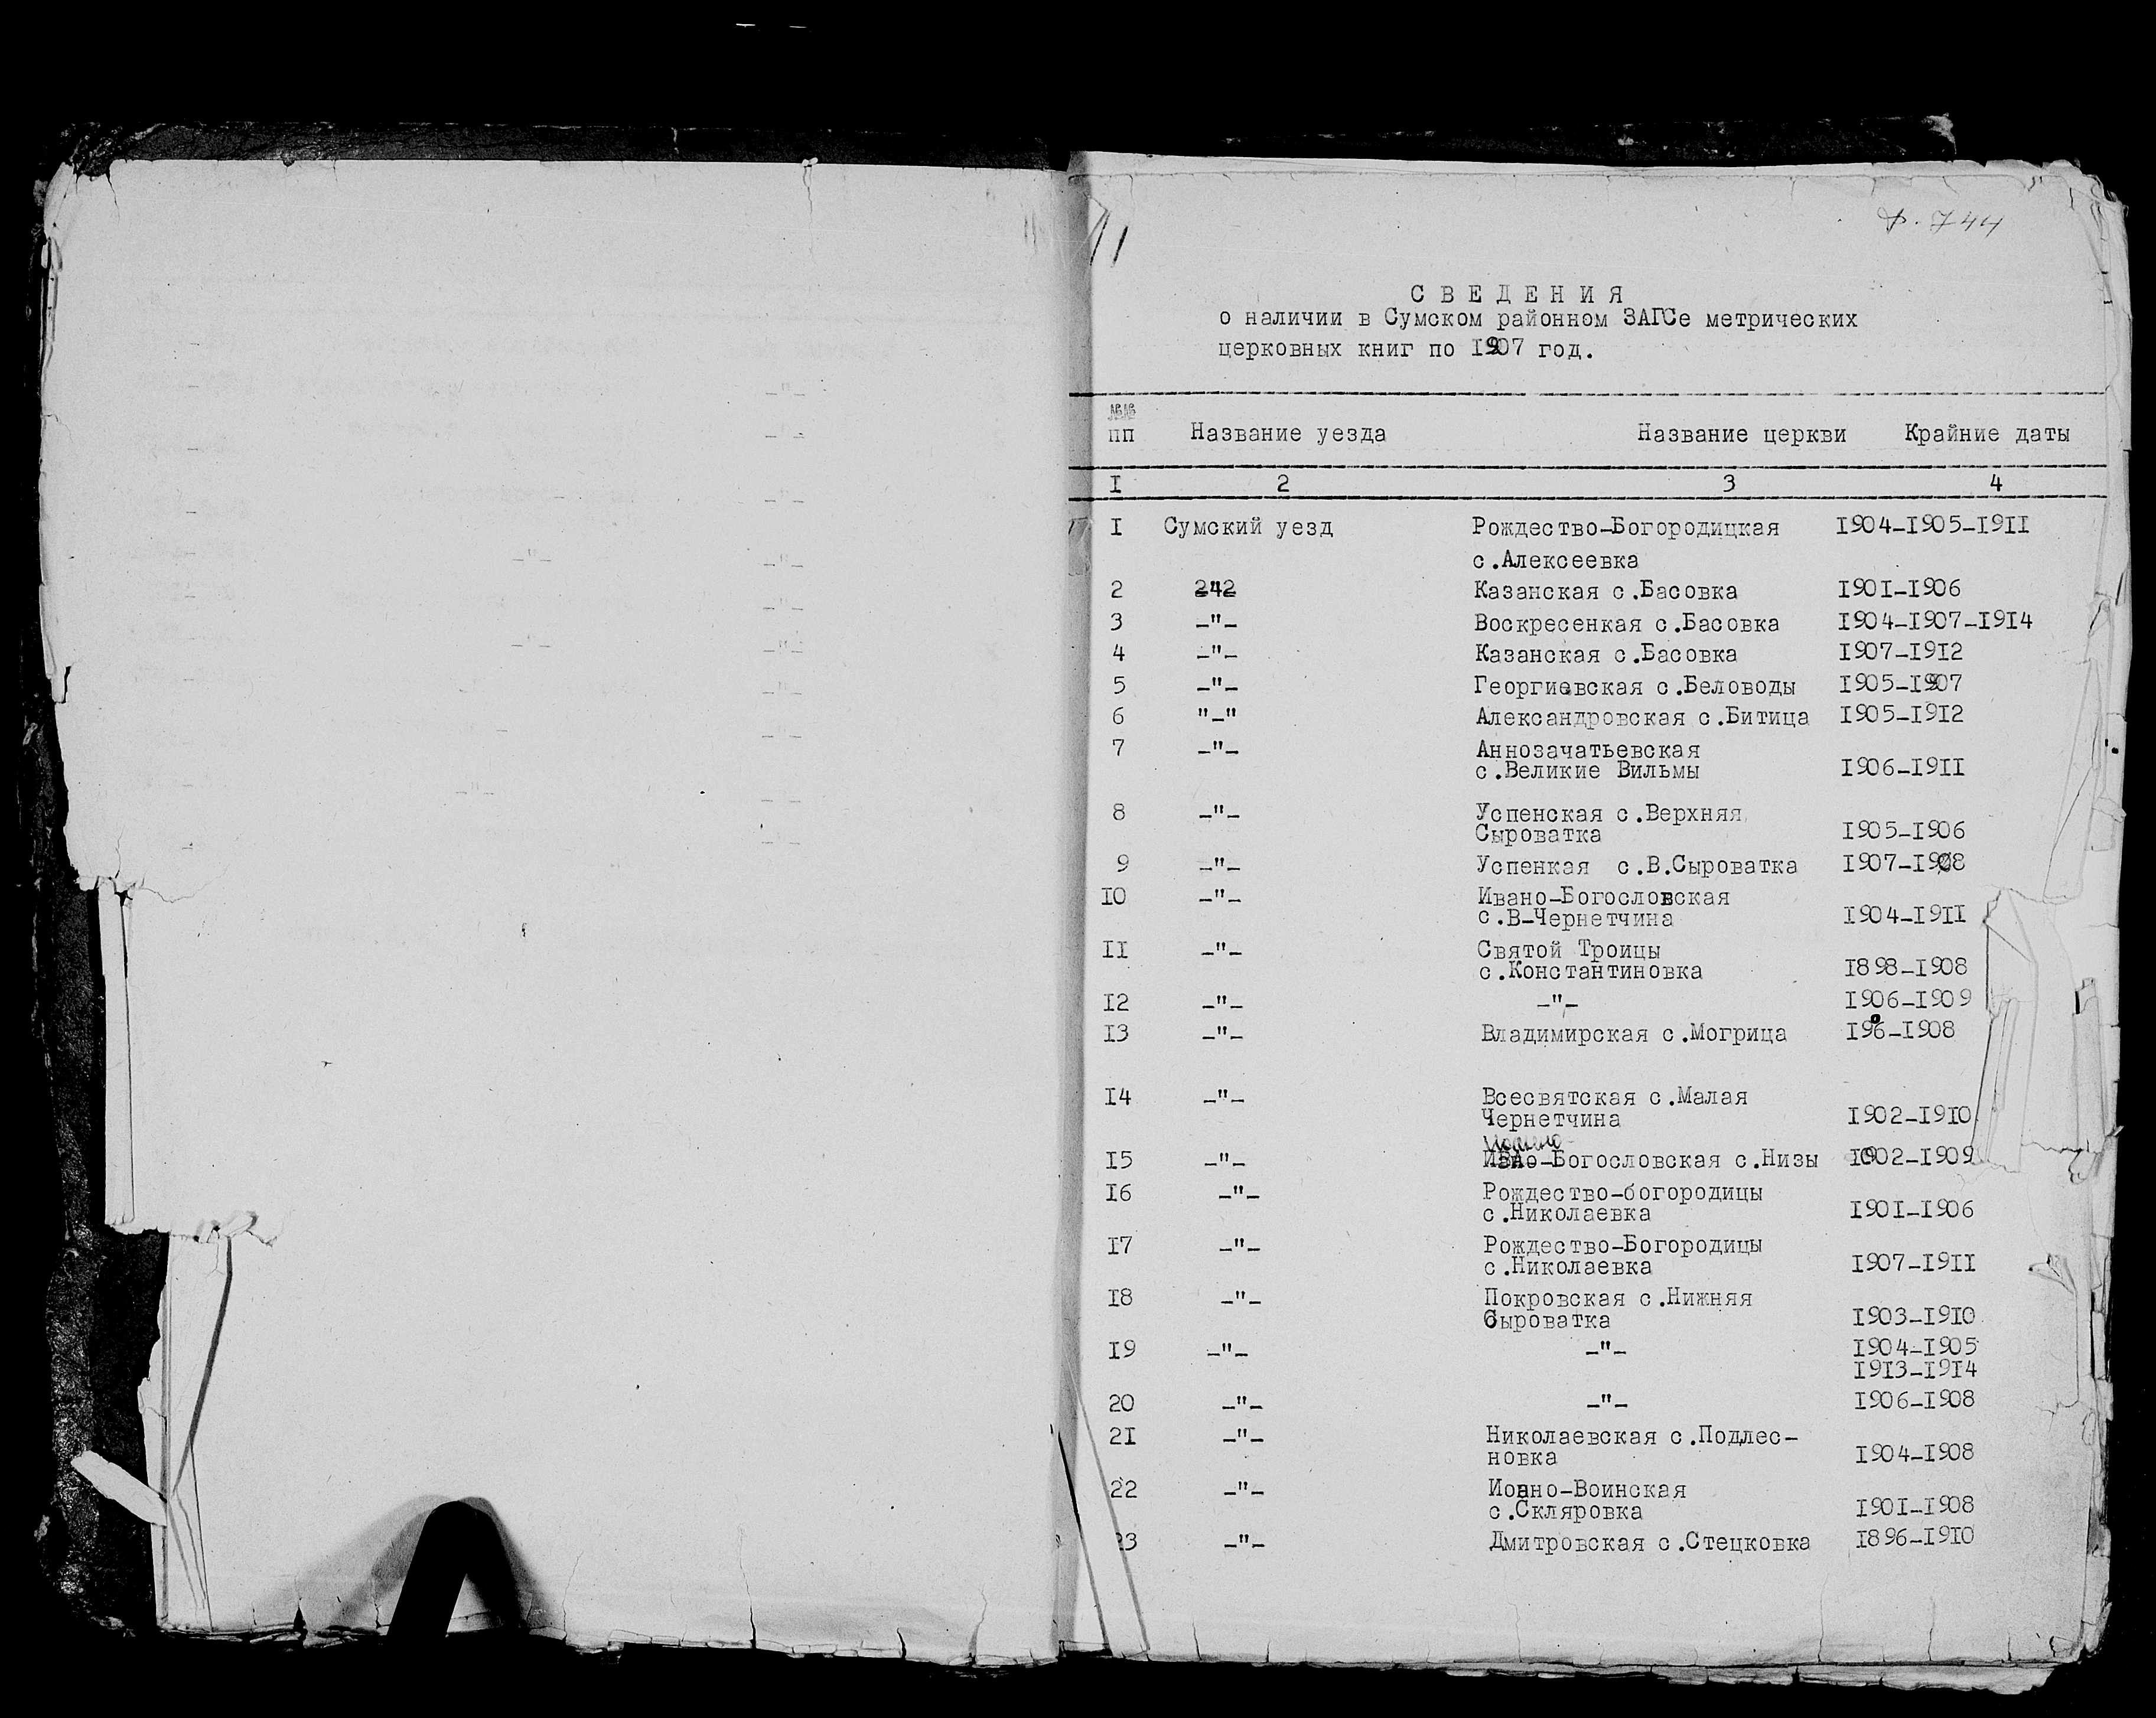 ф. 744
СВЕДЕНИЯ
о наличии в Сумском районном ЗАГСе метрических
церковных книг по 1907 год.
№№
пп Название уезда Название церкви Крайние даты
I 2 3 4
I Сумский уезд Рождество-Богородицкая I904-I905-I9II
с.Алексеевка
2 -"- Казанская с.Басовка I90I-I906
3 -"- Воскресенкая с.Басовка I904-I907-I9I4
4 -"- Казанская с.Басовка I907-I9I2
5 -"- Георгиевская с.Беловоды I905-I907
6 "-" Александровская с.Битица I905-I9I2
7 -"- Аннозачатьевская
с.Великие Вильмы I906-I9II
8 -"- Успенская с.Верхняя
Сыроватка I905-I906
9 -"- Успенкая с.В.Сыроватка I907-I908
I0 -"- Ивано-Богословская
с.В-Чернетчина I904-I9II
II -"- Святой Троицы
с.Константиновка I898-I908
I2 -"- -"- I906-I909
I3 -"- Владимирская с.Могрица I906-I908
I4 -"- Всесвятская с.Малая
Чернетчина I902-I9I0
I5 -"- Иоанно-Богословская с.Низы I902-I909
I6 -"- Рождество-богородицы
с.Николаевка I90I-I906
I7 -"- Рождество-Богородицы
с.Николаевка I907-I9II
I8 -"- Покровская с.Нижняя
Сыроватка I903-I9I0
I9 -"- -"- I904-I905
I9I3-I9I4
20 -"- -"- I906-I908
2I -"- Николаевская с.Подлес-
новка I904-I908
22 -"- Иоанно-Воинская
с.Скляровка I90I-I908
23 -"- Дмитровская с.Стецковка I896-I9I0